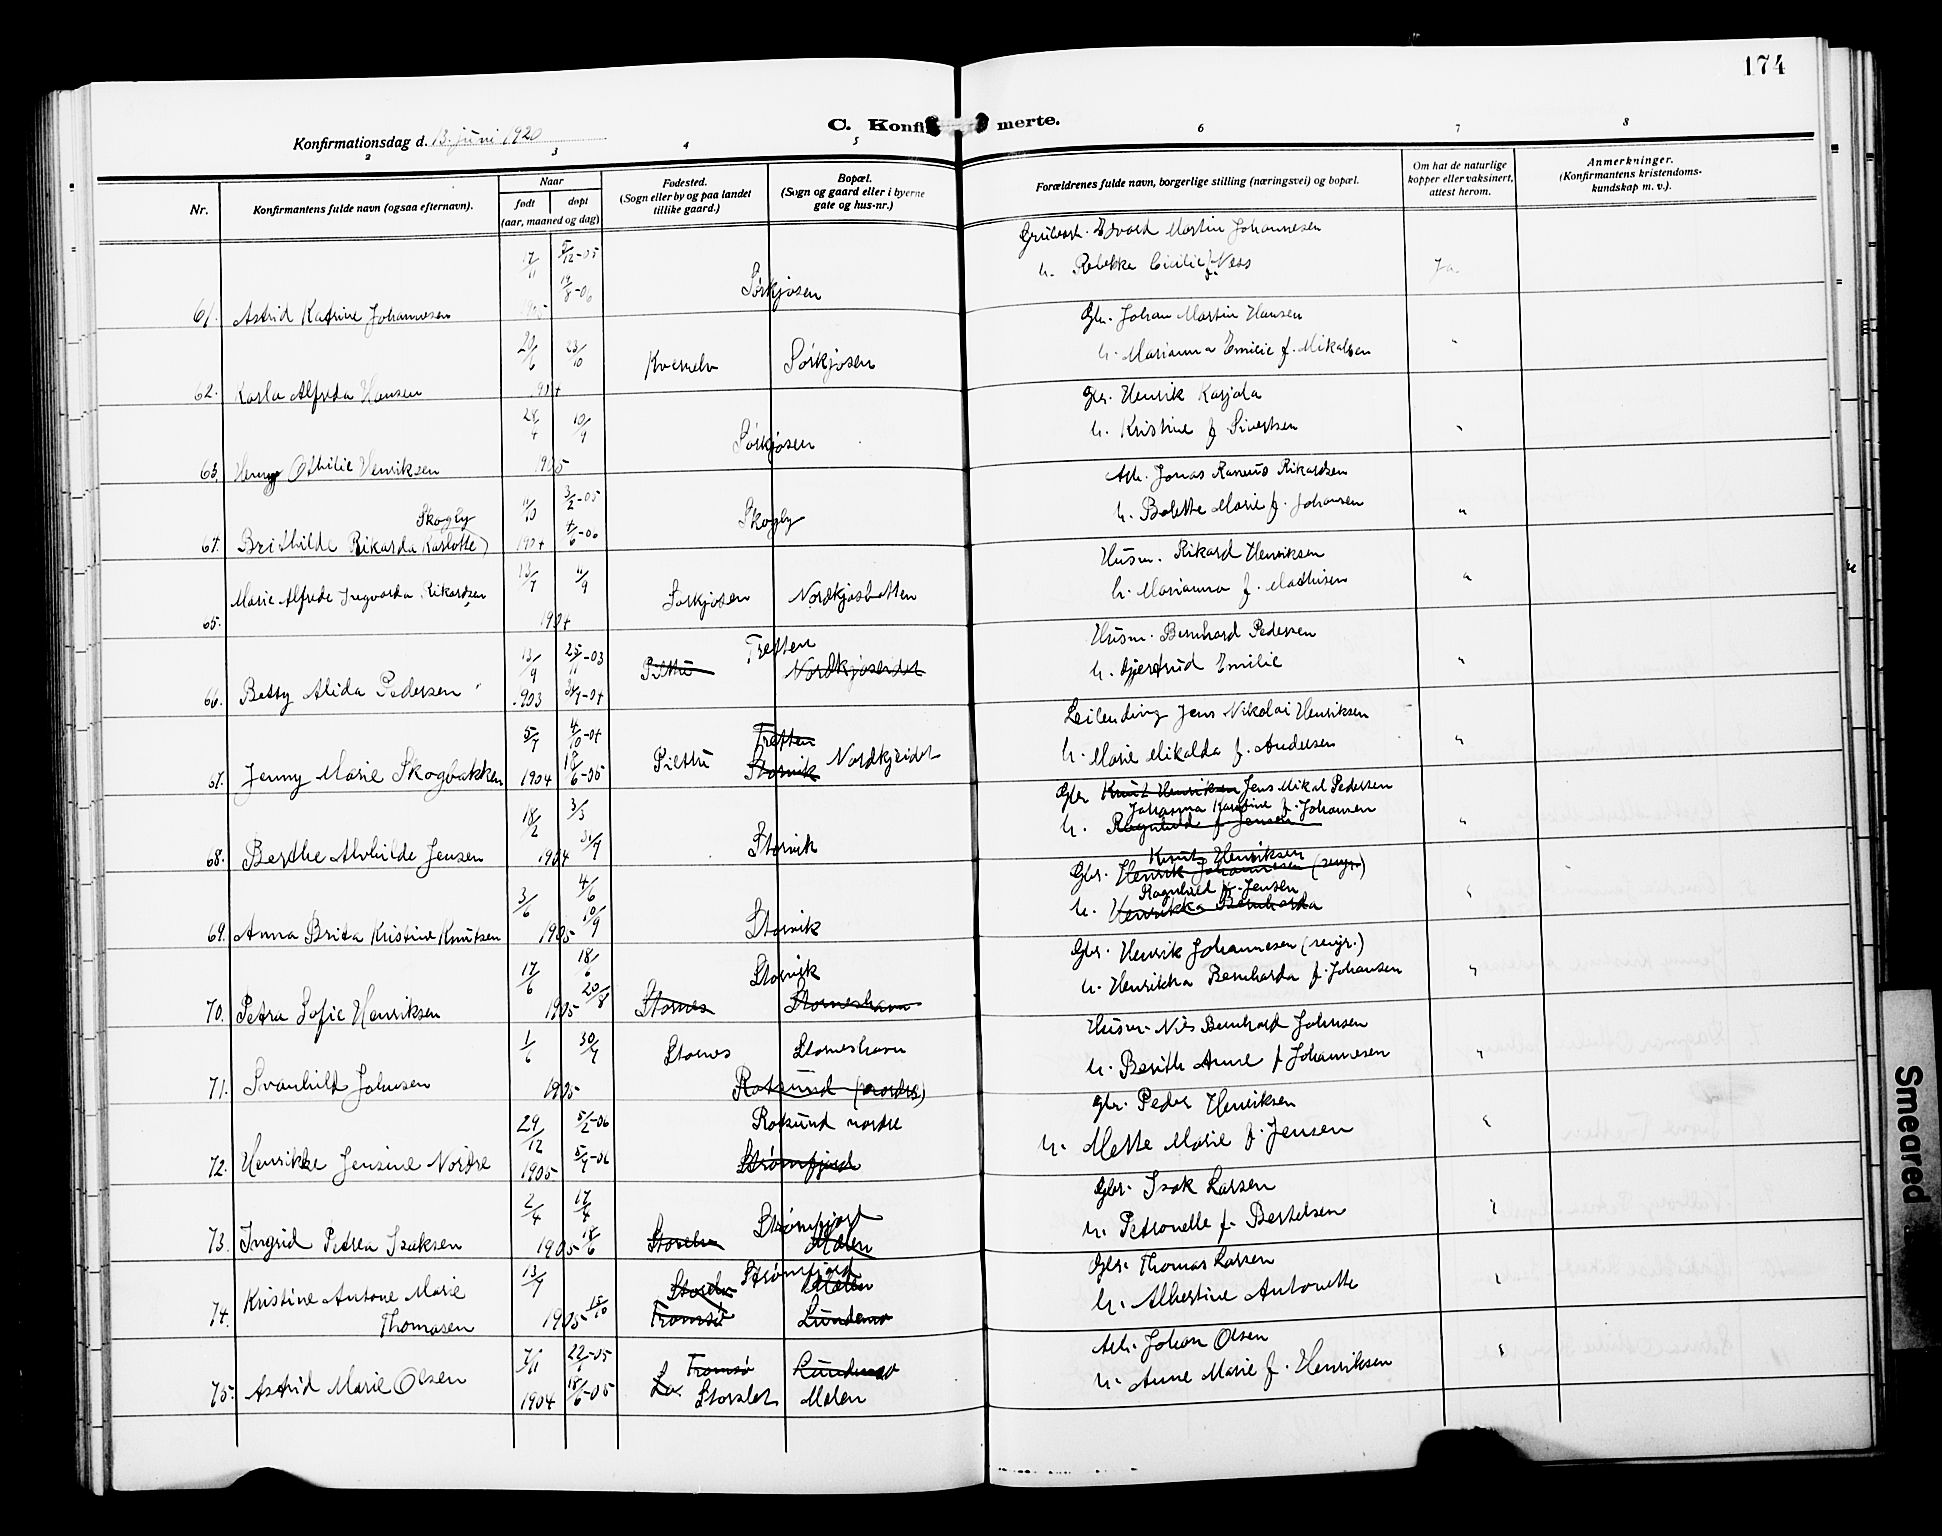 174
C. Konfirmerte.
Konfirmationsdag d. 13. juni 1920
2 3 4 5 6 7 8
Nr.
Konfirmantens fulde navn (ogsaa efternavn).
Naar
født døpt
(aar, maaned og dag)
Fødested.
(Sogn eller by og paa landet
tillike gaard.)
Bopæl.
(Sogn og gaard eller i byerne
gate og hus-nr.)
Forældrenes fulde navn, borgerlige stilling (næringsvei) og bopæl.
Om hat de naturlige
kopper eller vaksinert,
attest herom.
Anmerkninger.
(Konfirmantens kristendoms-
kundskap m. v.).
61. Astrid Katrine Johannesen 17/11 1905 5/12-05 17/8-06 Sørkjosen
Edvard Martin Johannesen
h. Rebekka Cicilie f. Ness Ja.
62. Karla Alfreda Hansen 20/6 1904 23/10 Kvenelv Sørkjosen
Gbr. Johan Martin Hansen
h. Marianna Emilie f. Mikalsen "
63. Henny Othilie Henriksen 28/4 1905 10/9 Sørkjosen
Gbr. Henrik Karjala
h. Kristine f. Sivertsen "
64. Brithilde Rikarda Karlotte) Skogly 11/10 1904 3/2-05 4/6-06 Skogly
Arb. Jonas Rasmus Rikardsen
h. Bolette Marie f. Johansen "
65. Marie Alfrede Ingvarda Rikardsen 13/7 1904 11/9 Sørkjosen Nordkjosbotten
Husm. Rikard Henriksen
h. Marianna f. Mathisen "
66. Betsy Alida Pedersen 13/9 1903 25/11-03 31/7-04 Piettu Tretten
Nordkjoseidet
Husm. Bernhard Pedersen
h. Gjertrud Emilie "
67. Jenny Marie Skogbakken 5/7 1904 4/10-04 18/6-05 Piettu Tretten
Storvik Nordkjeidet
Leilending Jens Nikolai Henriksen
h. Marie Mikalda f. Andersen "
68. Berthe Alvhilde Jensen 18/2 1904 3/3 31/7 Storvik
Gbr Knut Henriksen Jens Mikal Pedersen
Johanna Karoline f. Johansen
h. Ragnhild f. Jensen "
69. Anna Brita Kristine Knutsen 3/6 1905 4/6 10/9 Storvik
Knut Henriksen
Gbr. Henrik Johannesen (rengr.)
Ragnhild f. Jensen
h. Henrikka Bernharda "
70. Petra Sofie Henriksen 17/6 1905 18/6 20/8 Stornes Storvik
Storneshavn
Gbr. Henrik Johannesen (rengr.)
h. Henrikka Bernharda f. Johansen "
71. Svanhild Johnsen 1/6 1905 30/7 Stornes Storneshavn
Rotsund (nordre)
Husm. Nils Bernhard Johnsen
h. Berith Anne f. Johannesen "
72. Henrikke Jensine Nordre 29/12 1905 5/2-06 5/7-06 Rotsund nordre
Strømfjord
Gbr. Peder Henriksen
h. Mette Marie f. Jensen "
73. Ingrid Petrea Isaksen 2/4 1905 17/4 18/6 Storelv Strømfjord
Molen
Gbr. Isak Larsen
h. Petronelle f. Bertelsen "
74. Kristine Antone Marie
Thomasen 13/7 1905 15/10 Storelv Strømfjord
Molen
Tromsø Lundemo
Gbr. Thomas Larsen
h. Albertine Antonette "
75. Astrid Marie Olsen 7/11 1904 22/1-05 18/6-05 Tromsø Lundemo
Storslet Molen
Arb. Johan Olsen
h. Anne Marie f. Henriksen "
Smeared